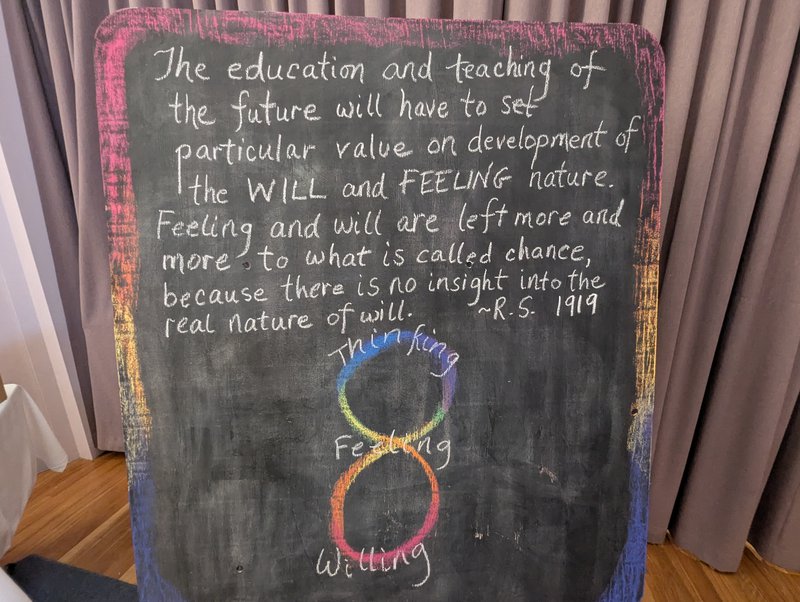 The education and teaching of
the future will have to set
particular value on development of
the WILL and FEELING nature.
Feeling and will are left more and
more to what is called chance,
because there is no insight into the
real nature of will. ~R.S. 1919
Thinking
Feeling
Willing